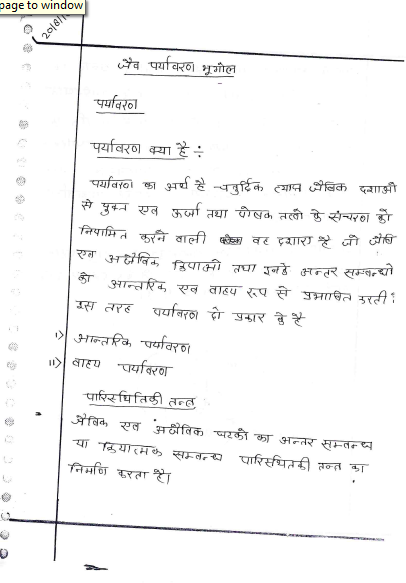 page to window
20/8/
जैव पर्यावरण भूगोल
पर्यावरण
पर्यावरण क्या है ÷
पर्यावरण का अर्थ है चतुर्दिक व्याप्त जैविक दशाओं
से युक्त एवं ऊर्जा तथा पोषक तत्वों के संचरण को
नियामित करने वाली वह दशाएं है जो जैवि
एवं अजैविक क्रियाओं तथा इनके अन्तर सम्बन्धो
को आन्तरिक एवं वाहय रूप से प्रभावित करती।
इस तरह पर्यावरण दो प्रकार के है
i) आन्तरिक पर्यावरण
ii) वाहय पर्यावरण
पारिस्थितिकी तन्त
जैविक एवं अजैविक घटकों का अन्तर सम्बन्ध
या क्रियात्मक सम्बन्ध पारिस्थितकी तन्त का
निर्माण करता है।